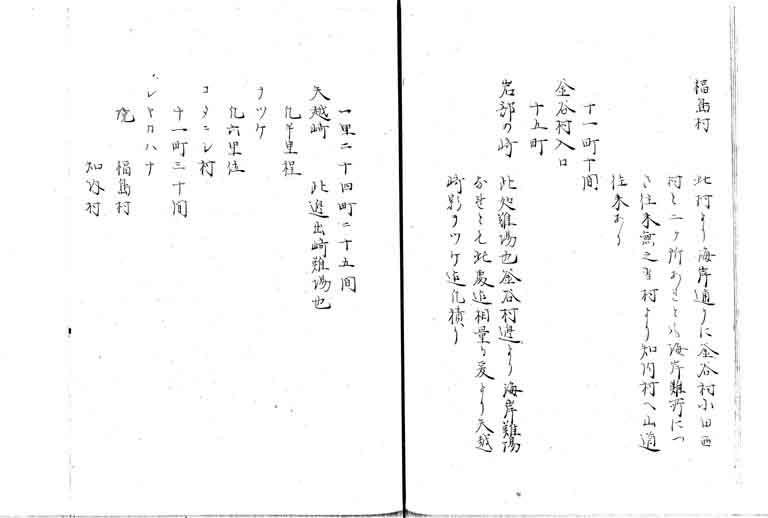 福島村
此村より海岸通りに釜谷村小田西
村と二ケ所あれとも海岸難所につ
き往来無之当村より知内村へ山道
往来あり
十一町十間
釜谷村入口
十五町
岩部の崎
此処難場也釜谷村迄より海岸難場
なれとも此処迄相量る爰より矢越
崎影ヲツケ迄凡積り
一里二十四町二十五間
矢越崎
此邊出崎難場也
凡半里程
ヲツケ
凡六里位
コタニシ村
十一町三十間
シヤカハナ
境
福島村
知内村